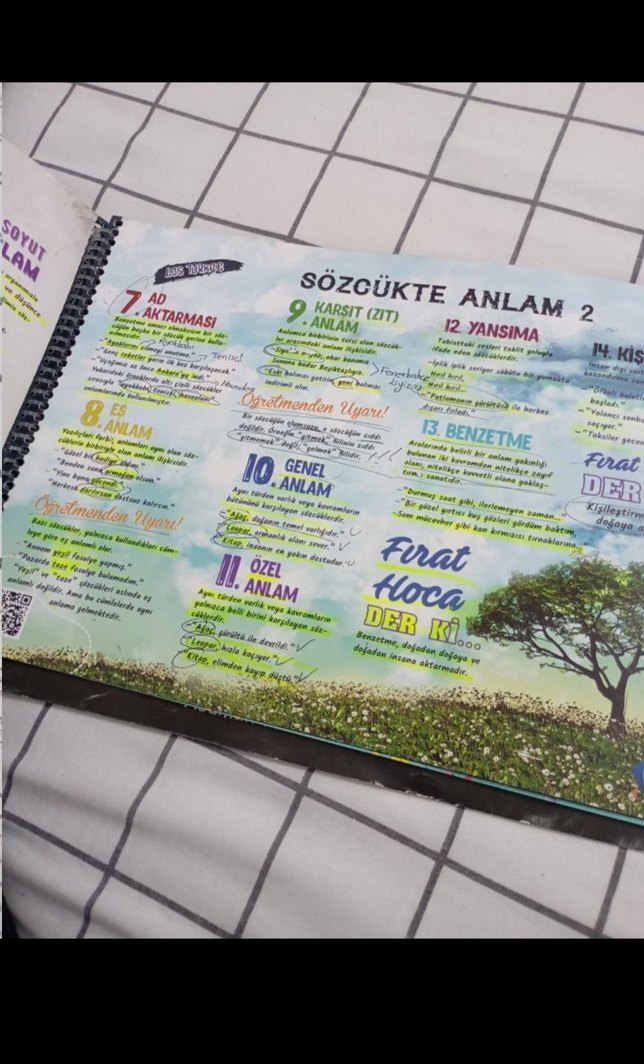 SOYUT
LAM
LGS TÜRKÇE
SÖZCÜKTE ANLAM 2
7. AD
AKTARMASI
Benzetme amacı olmaksızın bir söz-
cüğün başka bir sözcük yerine kulla-
nılmasıdır.
"Ayaklarını silmeyi unutma."
"Genç raketler yarın ilk kez karşılaşacak."
az önce Ankara'ya indi."
Yukarıdaki örneklerde altı çizili sözcükler
sırasıyla "ayakkabı, tenisçi, havaalanı"
anlamlarında kullanılmıştır.
Ayakkabı
Tenisçi
8. EŞ
ANLAM
Yazılışları farklı, anlamları aynı olan söz-
cüklerin birbiriyle olan anlam ilişkisidir.
"Güzel bir
"Benden sana
"Yine bana
"Herkese darılırsan dostsuz kalırsın."
Öğretmenden Uyarı!
Bazı sözcükler, yalnızca kullandıkları cüm-
leye göre eş anlamlı olur.
"Annem yeşil fasulye yapmış."
"Pazarda taze fasulye bulamadım."
"Yeşil" ve "taze" sözcükleri aslında eş
anlamlı değildir. Ama bu cümlelerde aynı
anlama gelmektedir.
9. KARŞIT (ZIT)
ANLAM
Anlamca birbirinin tersi olan sözcük-
ler arasındaki anlam ilişkisidir.
akar kanımız
Sonuna kadar Beşiktaşlıyız.
Eski balonu getirin yeni balonu
indirelim alın.
Fenerbahçe
liyiz
Öğretmenden Uyarı!
Bir sözcüğün olumsuzu o sözcüğün zıddı
değildir. Örneğin "gitmek" fiilinin zıddı
"gitmemek" değil; "gelmek" fiilidir.
!!!!
10. GENEL
ANLAM
Aynı türden varlık veya kavramların
bütününü karşılayan sözcüklerdir.
"Ağaç, doğanın temel varlığıdır."
"Leopar, ormanlık alanı sever."
"Kitap, insanın en yakın dostudur."
11. ÖZEL
ANLAM
Aynı türden varlık veya kavramların
yalnızca belli birini karşılayan söz-
cüklerdir.
"Ağaç, gürültü ile devrildi."
"Leopar, hızla kaçıyor."
"Kitap, elimden kayıp düştü."
12. YANSIMA
Tabiattaki sesleri taklit yoluyla
ifade eden sözcüklerdir.
"Patlamanın gürültüsü ile herkes
dışarı fırladı."
13. BENZETME
Aralarında belirli bir anlam yakınlığı
bulunan iki kavramdan nitelikçe zayıf
olanı, nitelikçe kuvvetli olana yaklaş-
tırma sanatıdır.
"Durmuş saat gibi, ilerlemeyen zaman."
"Bir güzel yırtıcı kuş gözleri gördüm baktım,
Som mücevher gibi kan kırmızısı tırnaklarına."
Fırat
Hoca
DER Kİ...
Benzetme, doğadan doğaya ve
doğadan insana aktarmadır.
14. KİŞ
İnsan dışı varl
kazandırma
başlad
"Yalancı sonba
saçıyor."
"Taksiler gece
Fırat
DER
Kişileştirm
doğaya a